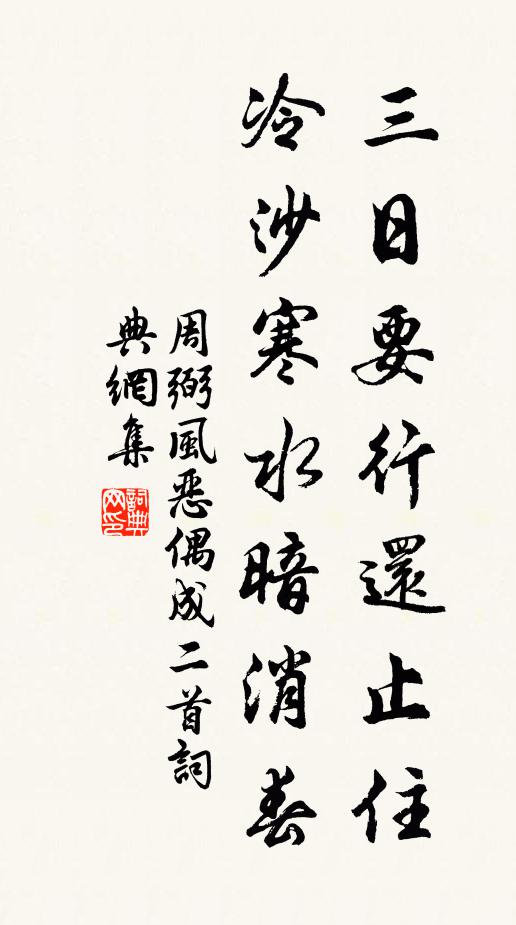 三日要行還止住
冷沙寒水暗消春
周弼風惡偶成二首詞
典網集
詞典網印